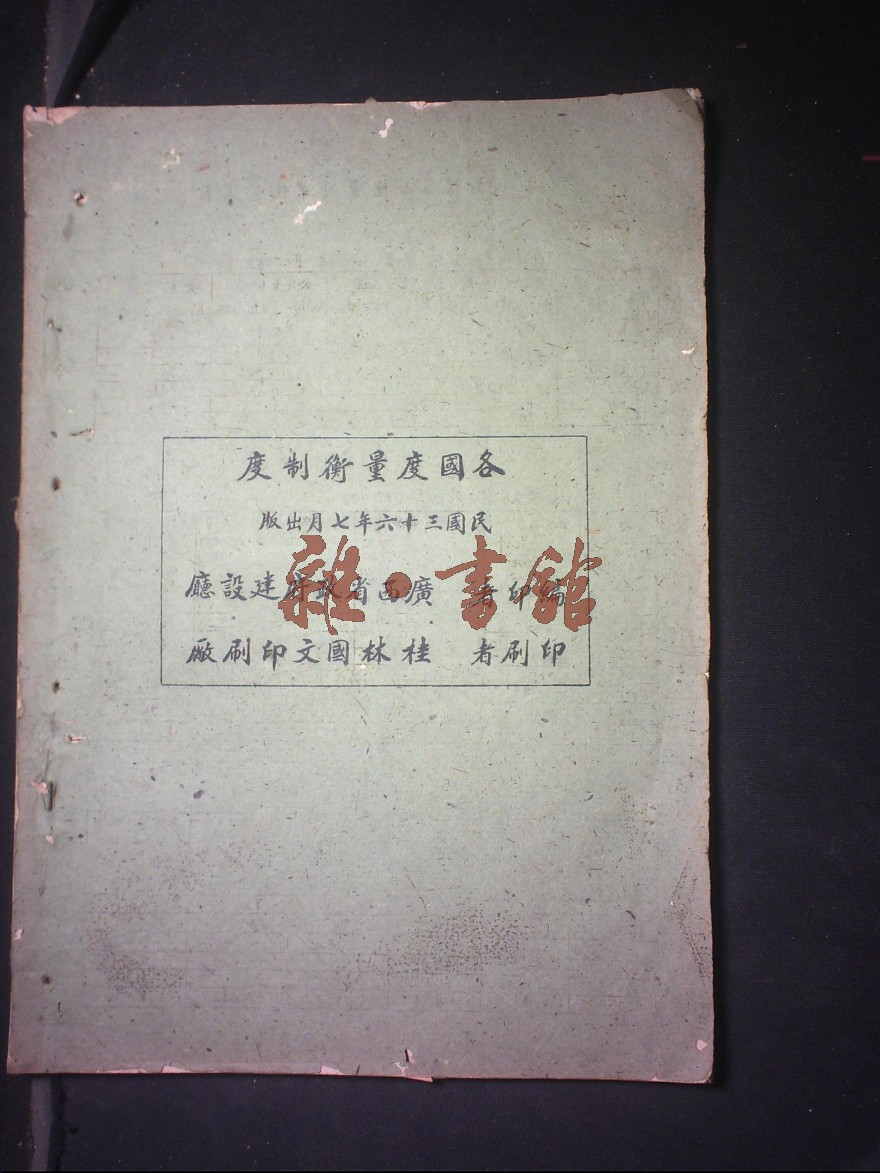 各國度量衡制度
民國三十六年七月出版
編印者 廣西省政府建設廳
印刷者 桂林國文印刷廠
雜·書館